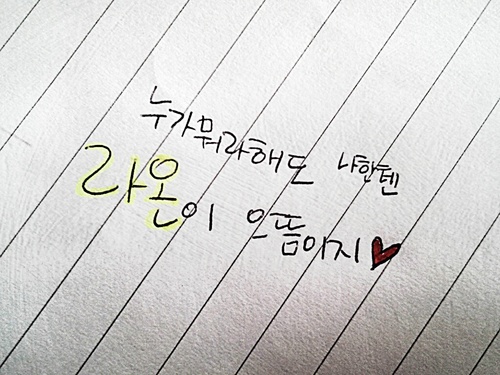 누가뭐라해도 나한텐
라온이 으뜸이지♥